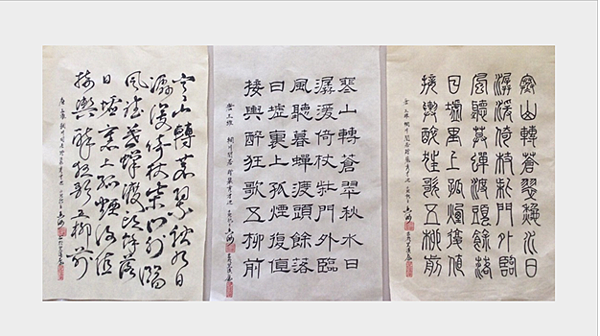 寒山轉蒼翠秋水日
潺湲倚杖柴門外臨
風聽暮蟬渡頭餘落
日墟里上孤煙復值
接輿醉狂歌五柳前
寒山轉蒼翠秋水日
潺湲倚杖柴門外臨
風聽暮蟬渡頭餘落
日墟裏上孤煙復值
接輿醉狂歌五柳前
唐王維 輞川閒居贈裴秀才迪
寒山轉蒼翠秋水日
潺湲倚杖柴門外臨
風聽暮蟬渡頭餘落
日墟裏上孤煙復值
接輿醉狂歌五柳前
唐王維 輞川閒居贈裴秀才迪